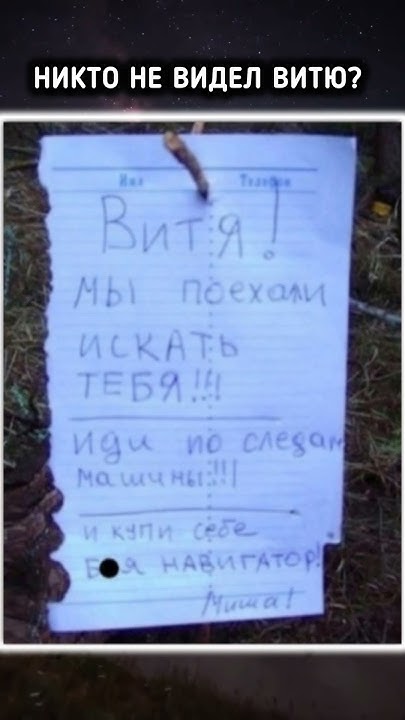 НИКТО НЕ ВИДЕЛ ВИТЮ?
Имя Телефон
Витя!
мы поехали
ИСКАТЬ
ТЕБЯ!!!
иди по следам
машины!!!
и купи себе
Б●я НАВИГАТОР!
Миша!